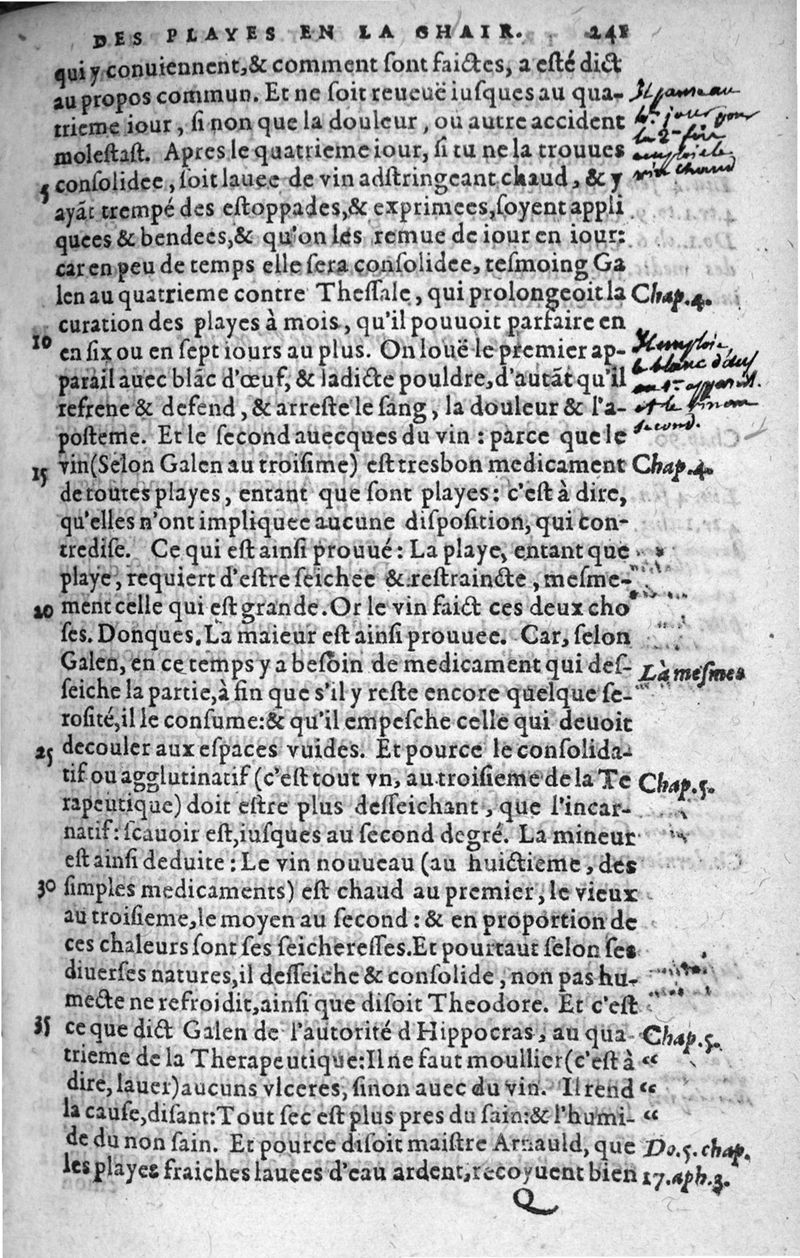 DES PLAYES EN LA CHAIR. 241
qui y conuiennent,& comment ſont faictes, a eſté dict
au propos commun. Et ne ſoit reueuë iuſques au qua-
trieme iour, ſi non que la douleur, ou autre accident
moleſtaſt. Apres le quatrieme iour, ſi tu ne la trouues
5 conſolidee, ſoit lauee de vin adſtringeant chaud, & y
ayãt trempé des eſtoppades,& exprimees,ſoyent appli
quees & bendees,& qu'on les remue de iour en iour:
car en peu de temps elle ſera conſolidee, teſmoing Ga
len au quatrieme contre Theſſale, qui prolongeoit la Chap.4.
curation des playes à mois, qu'il pouuoit parfaire en
10 en ſix ou en ſept iours au plus. On louë le premier ap-
parail auec blãc d'œuf, & ladicte pouldre,d'autãt qu'il
refrene & defend, & arreſte le ſang, la douleur & l'a-
poſteme. Et le ſecond auecques du vin : parce que le
15 vin(Selon Galen au troiſime) eſt tresbon medicament Chap.4.
de toutes playes, entant que ſont playes: c'eſt à dire,
qu'elles n'ont impliquee aucune diſpoſition, qui con-
tredise. Ce qui eſt ainſi prouué: La playe, entant que
playe, requiert d'eſtre ſeichee & reſtraincte, meſme-
20 ment celle qui eſt grande. Or le vin faict ces deux cho
ſes. Donques. La maieur eſt ainſi prouuee. Car, ſelon
Galen, en ce temps y a beſoin de medicament qui deſ- Là meſmes
ſeiche la partie,à fin que s'il y reſte encore quelque ſe-
roſité,il le conſume:& qu'il empeſche celle qui deuoit
25 decouler aux eſpaces vuides. Et pource le conſolida-
tif ou agglutinatif (c'eſt tout vn, au troiſieme de la Te Chap.5.
rapeutique) doit eſtre plus deſſeichant, que l'incar-
natif: ſcauoir eſt,iuſques au ſecond degré. La mineur
eſt ainſi deduite : Le vin nouueau (au huictieme, des
30 ſimples medicaments) eſt chaud au premier, le vieux
au troiſieme,le moyen au ſecond : & en proportion de
ces chaleurs ſont ſes ſeichereſſes.Et pourtaut ſelon ſes
diuerſes natures,il deſſeiche & conſolide, non pas hu-
mecte ne refroidit,ainſi que diſoit Theodore. Et c'eſt
35 ce que dict Galen de l'autorité d'Hippocras, au qua Chap.5.
trieme de la Therapeutique:Il ne faut moullier(c'eſt à “
dire, lauer)aucuns vlceres, ſinon auec du vin. Il rend “
la cauſe,diſant:Tout ſec eſt plus pres du ſain:& l'humi- “
de du non ſain. Et pource diſoit maiſtre Arnauld, que Do.5.chap.
les playes fraiches lauees d'eau ardent,reçoyuent bien 17.aph.3.
Q